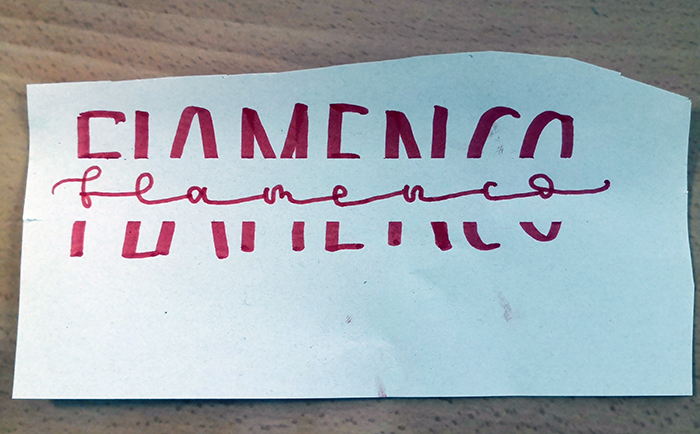 FLAMENCO
flamenco